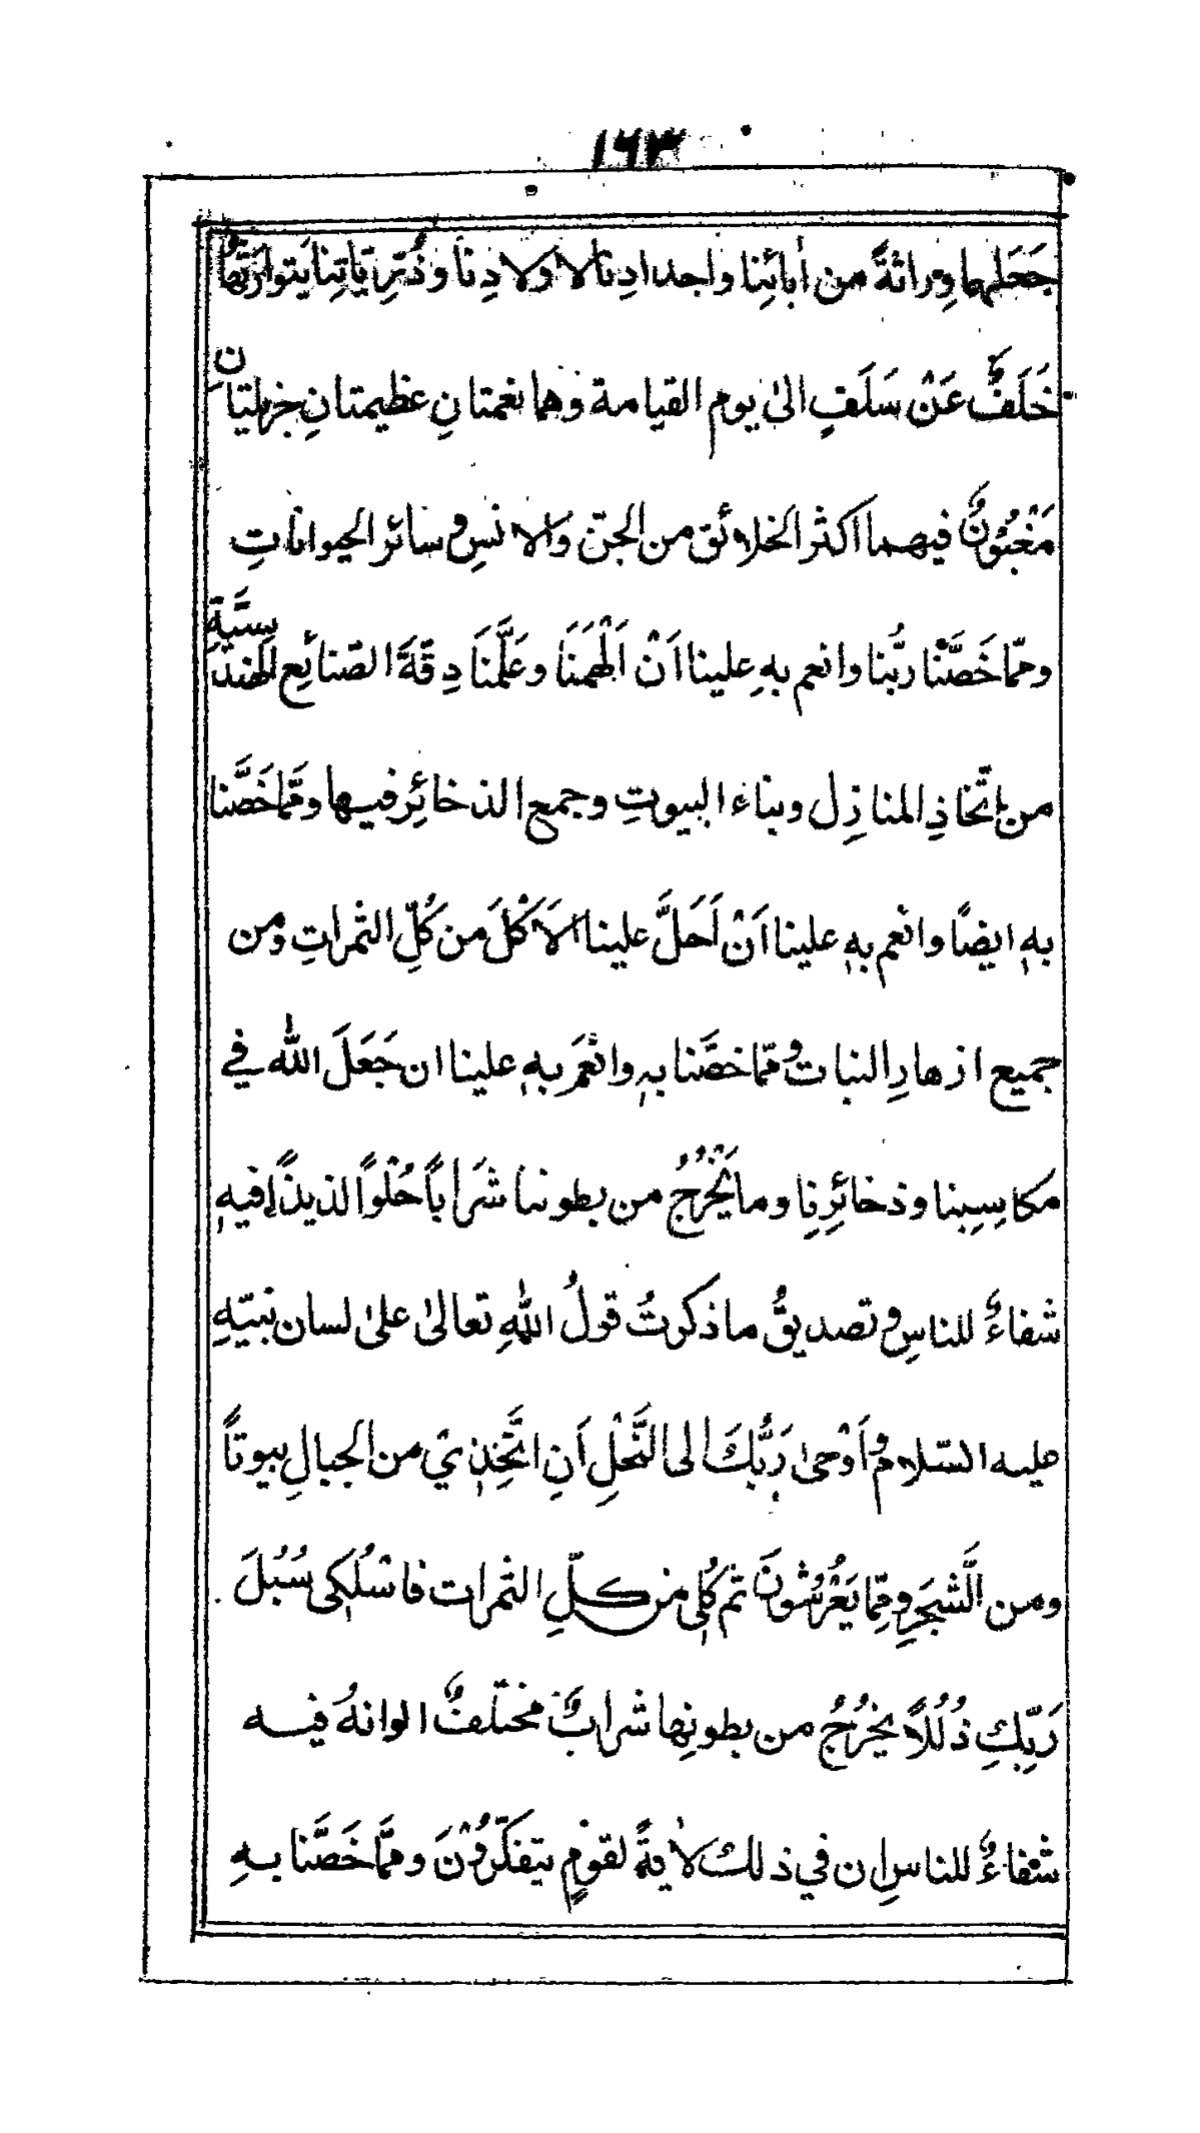 ١٦٣
جَعَلهما وِراثةً من أبائِنا واجدادِنا لاولادِنا وذُرِّيّاتِنا يَتوارَثُها
خَلَفٌ عَنْ سَلَفٍ الىٰ يوم القيامة وهما نعمتانِ عظيمتانِ جزيلتانِ
مَغْبُوْنٌ فيهما اكثر الخلائق من الجنّ والانسِ وسائر الحيواناتِ
وممّا خَصَّنْا ربُّنا وانعم بهِ علينا اَنْ اَلْهَمَنَا وعَلَّمَنَا دِقَّةَ الصّنائِع الهندسيَّةِ
من اِتّخاذِ المنازِل وبناء البيوتِ وجمع الذخائِر فيها وممَّا خَصَّنا
بهٖ ايضًا وانعم بهٖ علينا اَنْ اَحَلَّ علينا الاَكْلَ من كُلِّ الثمراتِ ومن
جميع ازهارِ النبات وممّا خصَّنا بهٖ وانْعَمَ بهٖ علينا ان جَعَلَ الله في
مكاسِبِنا وذخائِرِنا وما يَخْرُجُ من بطوننا شَرَاباً حُلْواً لذيذًا فيهٖ
شفاءٌ للناسِ وتصديقُ ما ذكرتُ قولُ اللهِ تعالىٰ علىٰ لسان نبيّهِ
عليه السّلام واَوْحىٰ رَبُّكَ الى النَّحْلِ اَنِ اتَّخِذِيْ من الجبالِ بيوتاً
ومن الَّشجَرِ وممِّا يَعْرُشُونَ ثم كُلِى من كلِّ الثمرات فاسْلُكى سُبُلَ
رَبِّكِ ذُلُلاً يخرُجُ من بطونِها شرابٌ مختلفٌ الوانهُ فيه
شفاءٌ للناسِ ان في ذلك لاٰيةً لقومٍ يتفكّرُوْنَ وممَّا خَصَّنا بهِ